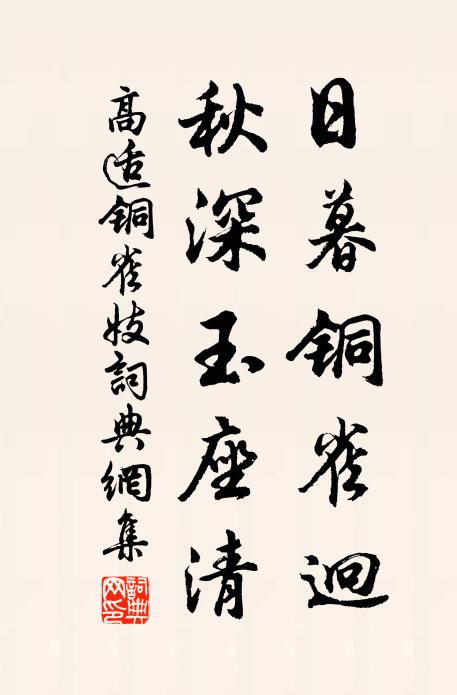 日暮铜雀迥
秋深玉座清
高适铜雀妓詞典網集
詞典網印